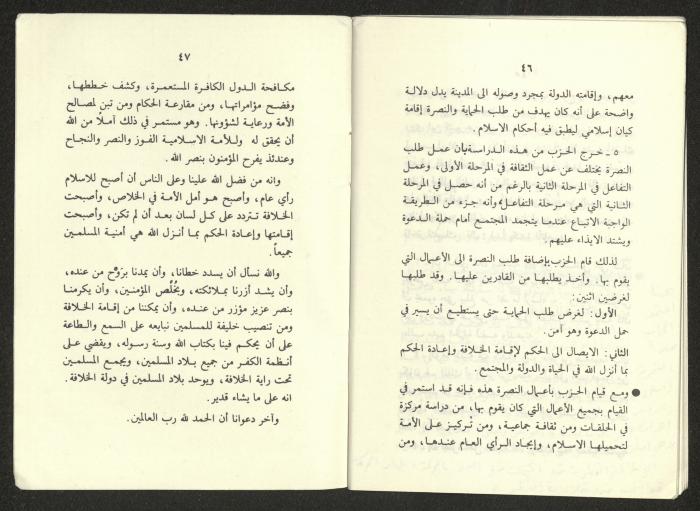 ٤٦
معهم، وإقامته الدولة بمجرد وصوله الى المدينة يدل دلالة
واضحة على أنه كان يهدف من طلب الحماية والنصرة إقامة
كيان إسلامي ليطبق فيه أحكام الاسلام.
٥ ـ خرج الحزب من هذه الدراسة بأن عمل طلب
النصرة يختلف عن عمل الثقافة في المرحلة الأولى، وعمل
التفاعل في المرحلة الثانية بالرغم من أنه حصل في المرحلة
الثانية التي هي مرحلة التفاعل، وأنه جزء من الطريقة
الواجبة الاتباع عندما يتجمد المجتمع أمام حملة الدعوة
ويشتد الايذاء عليهم.
لذلك قام الحزب بإضافة طلب النصرة الى الأعمال التي
يقوم بها. وأخذ يطلبها من القادرين عليها. وقد طلبها
لغرضين اثنين:
الأول: لغرض طلب الحماية حتى يستطيع أن يسير في
حمل الدعوة وهو آمن.
الثاني: الايصال الى الحكم لإقامة الخلافة وإعادة الحكم
بما أنزل الله في الحياة والدولة والمجتمع.
● ومع قيام الحزب بأعمال النصرة هذه فإنه قد استمر في
القيام بجميع الأعمال التي كان يقوم بها، من دراسة مركزة
في الحلقات ومن ثقافة جماعية، ومن تركيز على الأمة
لتحميلها الاسلام، وإيجاد الرأي العام عندها، ومن
٤٧
مكافحة الدول الكافرة المستعمرة، وكشف خططها،
وفضح مؤامراتها، ومن مقارعة الحكام ومن تبن لمصالح
الأمة ورعاية لشؤونها. وهو مستمر في ذلك آملًا من الله
أن يحقق له وللأمة الاسلامية الفوز والنصر والنجاح
وعندئذ يفرح المؤمنون بنصر الله.
وانه من فضل الله علينا وعلى الناس أن أصبح للاسلام
رأي عام، وأصبح هو أمل الأمة في الخلاص، وأصبحت
الخلافة تتردد على كل لسان بعد أن لم تكن، وأصبحت
إقامتها وإعادة الحكم بما أنزل الله هي أمنية المسلمين
جميعاً.
والله نسأل أن يسدد خطانا، وأن يمدنا بروح من عنده،
وأن يشد أزرنا بملائكته، وبخُلّص المؤمنين، وأن يكرمنا
بنصر عزيز مؤزر من عنده، وأن يمكننا من إقامة الخلافة
ومن تنصيب خليفة للمسلمين نبايعه على السمع والطاعة
على أن يحكم فينا بكتاب الله وسنة رسوله، ويقضي على
أنظمة الكفر من جميع بلاد المسلمين، ويجمع المسلمين
تحت راية الخلافة، ويوحد بلاد المسلمين في دولة الخلافة.
انه على ما يشاء قدير.
وآخر دعوانا أن الحمد لله رب العالمين.